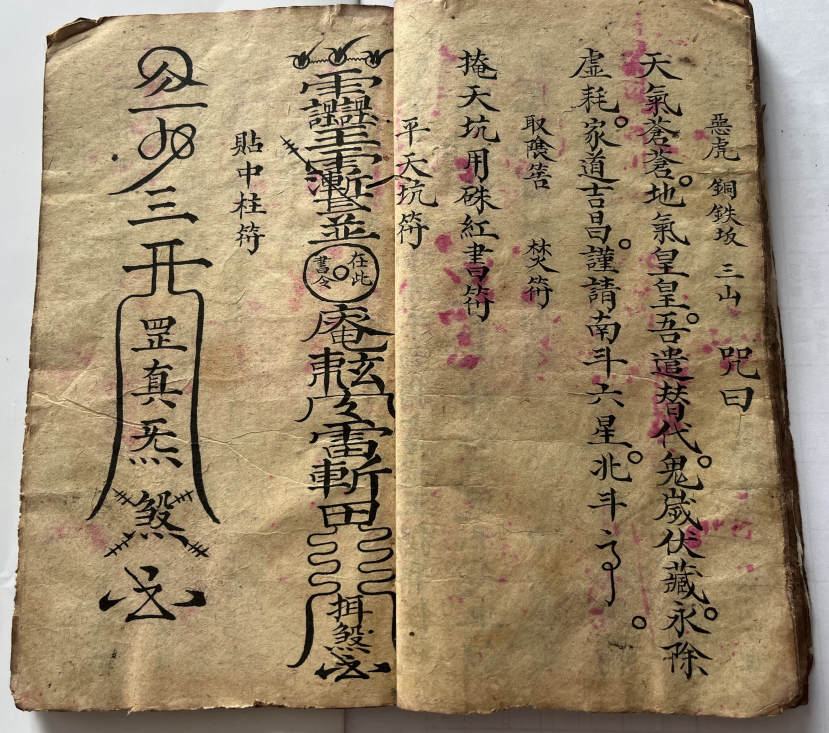 惡虎 銅鉄坂 三山 咒曰
天氣蒼蒼。地氣皇皇。吾遣替代。鬼嵗伏藏。永除
虛耗。家道吉昌。謹請南斗六星。北斗
取隂筶 焚符
掩天坑用硃紅書符
平天坑符
在此書令
雷斬田
煞
貼中柱符
三開
罡真炁
煞